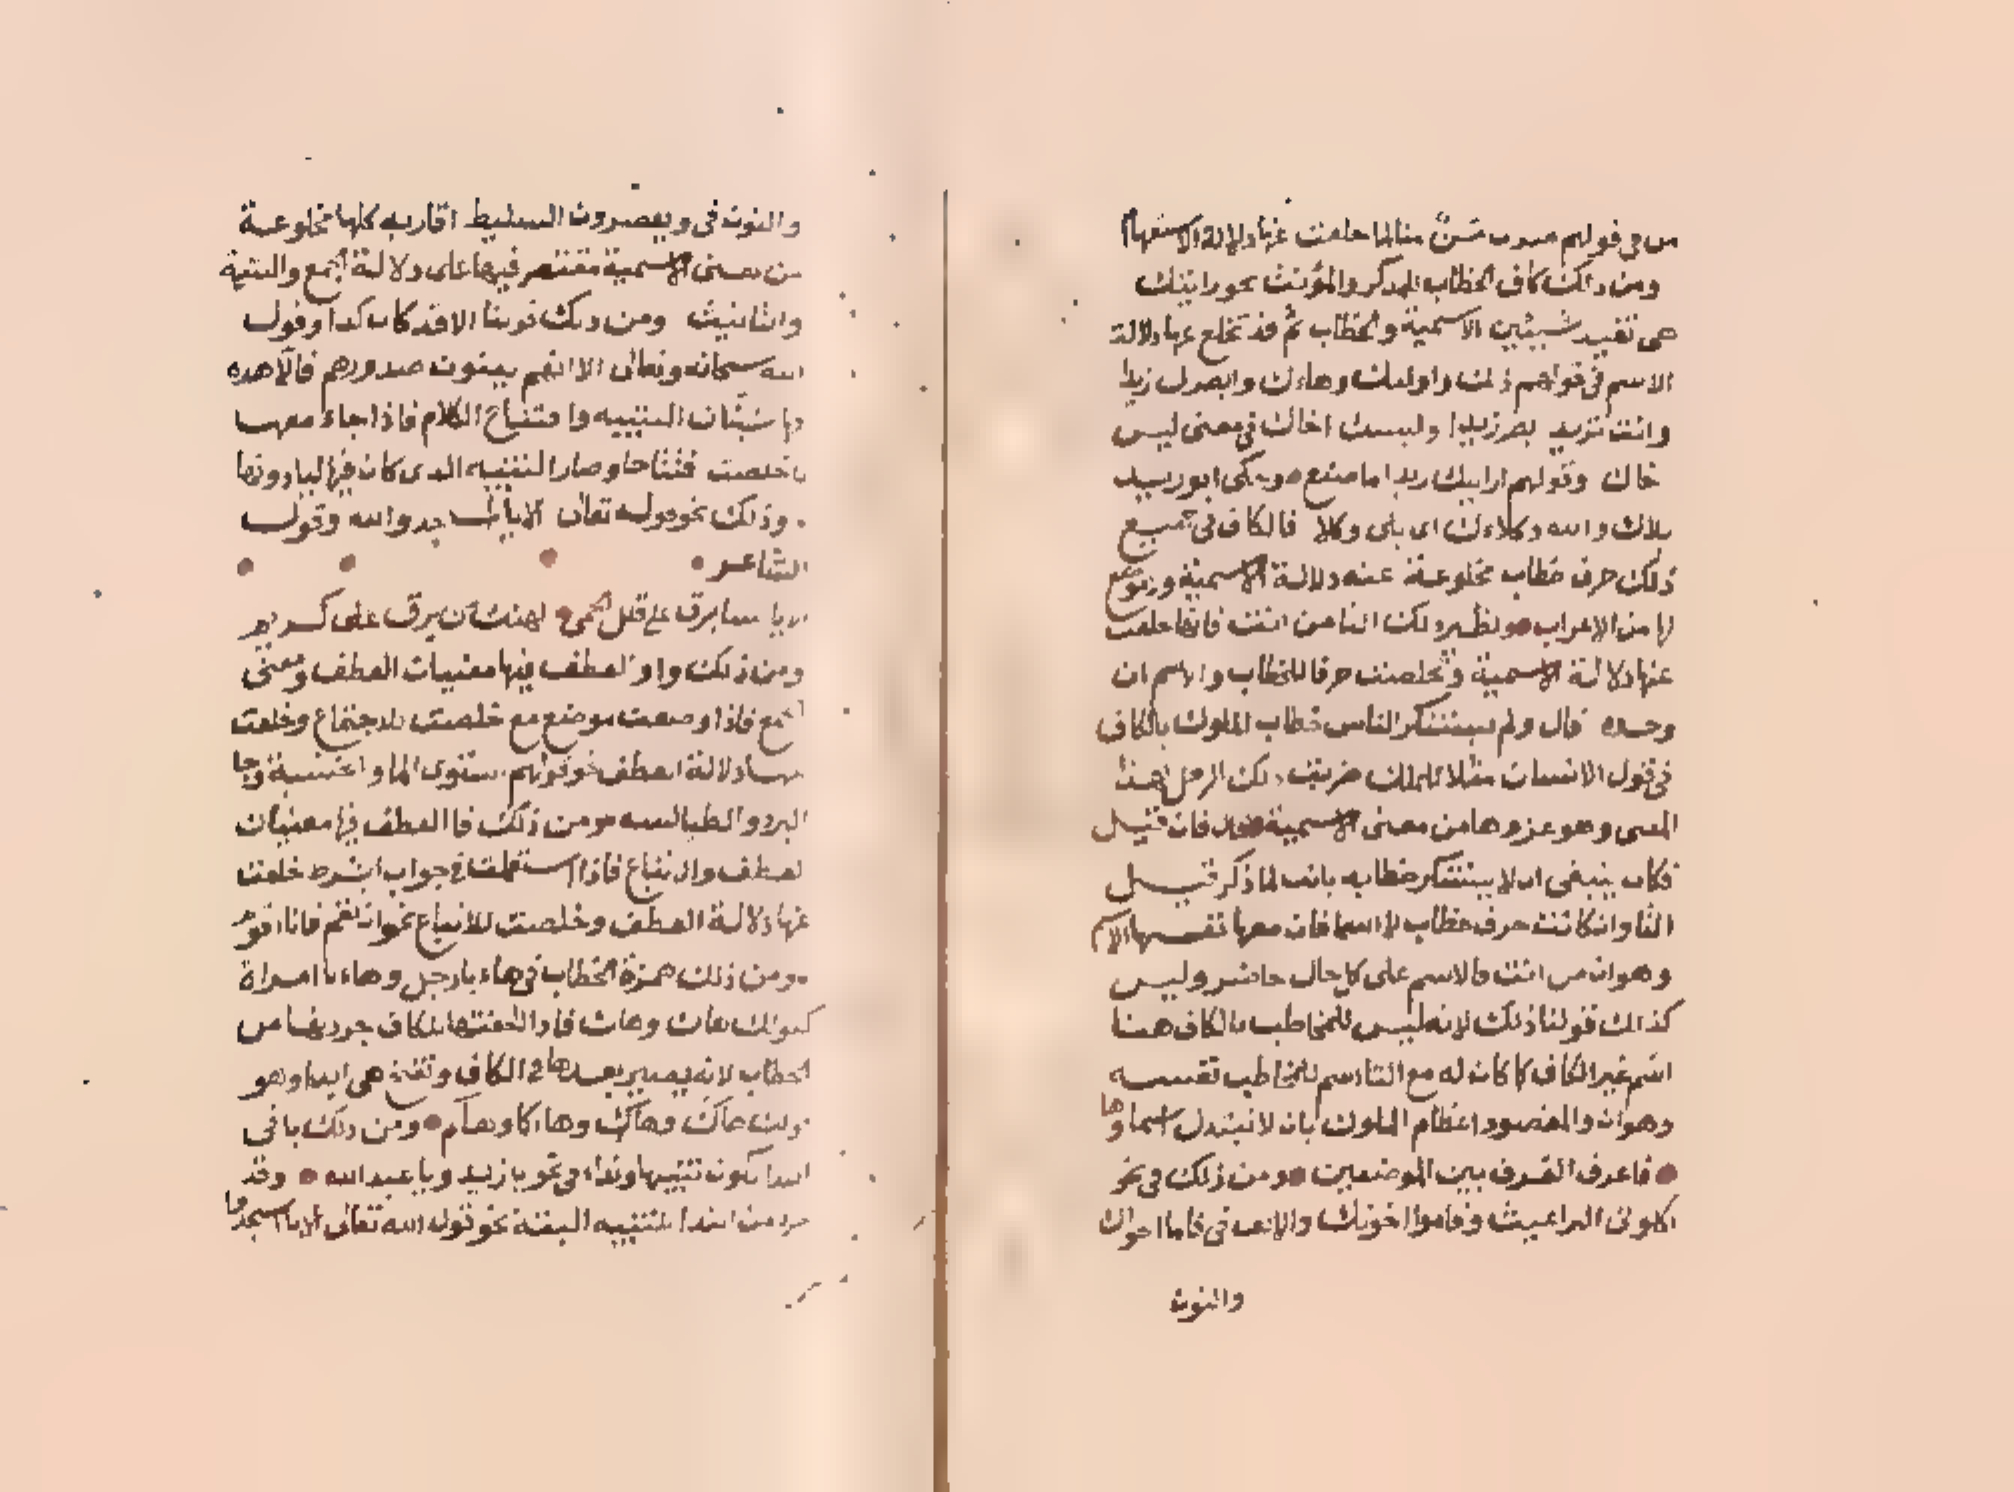 من في قولهم ضرب منٌ منا لما خلعت عنها دلالة الاستفهام
ومن ذلك كاف الخطاب للمذكر والمؤنث نحو رايتك
هي تفيد شيئين الاسمية والخطاب ثم قد تخلع عنها دلالة
الاسم في قولهم ذلك واولئك وهاءك وابصرك زيدا
وانت تريد بصر زيدا وليسك اخاك في معنى ليس
خاك وقولهم ارايتك زيدا ما صنع وحكى ابو زيد
بلاك والله وكلاك اى بلى وكلا فالكاف في جميع
ذلك حرف خطاب مخلوعة عنه دلالة الاسمية وموضع
لها من الاعراب ونظير ذلك التا من انت فانها خلعت
عنها دلالة الاسمية وتخلصت حرفا للخطاب والاسم ان
وحده قال ولم يستنكر الناس خطاب الملوك بالكاف
في قول الانسان مثلا للملك ضربت ذلك الرجل لهذا
المعنى وهو عزوها من معنى الاسمية فان قيل
فكان ينبغي ان لا يستنكر خطابه بانت لما ذكر قيل
التا وان كانت حرف خطاب لا اسما فان معها نفسها الاسم
وهو ان من انت فالاسم على كل حال حاضر وليس
كذلك قولنا ذلك لانه ليس للمخاطب بالكاف هنا
اسم غير الكاف كما كان له مع التا اسم للمخاطب نفسه
وهو ان والمقصود اعظام الملوك بان لا تبتذل اسماوها
فاعرف الفرق بين الموضعين ومن ذلك في نحو
اكلوني البراغيث وقاموا اخوتك والالف في قاما اخواك
والنون
والنون في ويعصرون السليط اقاربه كلها مخلوعة
من معنى الاسمية مقتصر فيها على دلالة الجمع والتثنية
والتانيث ومن ذلك قولنا الا قد كان كذا وقول
الله سبحانه وتعالى الا انهم يثنون صدورهم فالا هذه
فيها شيئان التنبيه وافتتاح الكلام فاذا جاء معها
يا خلصت افتتاحا وصار التنبيه الذي كان فيها ليا دونها
وذلك نحو قوله تعالى الا يا اسجدوا لله وقول
الشاعر
الا يا سنا برق على قلل الحمى لهنك من برق على كريم
ومن ذلك واو العطف فيها معنيان العطف ومعنى
الجمع فاذا وضعت موضع مع خلصت للاجتماع وخلعت
عنها دلالة العطف نحو قولهم استوى الما والخشبة وجا
البرد والطيالسه ومن ذلك فا العطف فيها معنيان
العطف والاتباع فاذا استعملت في جواب الشرط خلعت
عنها دلالة العطف وخلصت للاتباع نحو ان تقم فانا اقوم
ومن ذلك همزة الخطاب في هاء يا رجل وهاء يا امراة
كقولك هاك وهاك فاذا الحقتها الكاف جردتها من
الخطاب لانه يصير بعدها في الكاف وتفتح هي ابدا وهو
قولك هاءك وهاءك وهاءكما وهاءكم ومن ذلك يا في
الندا تكون تنبيها ونداء في نحو يا زيد ويا عبد الله وقد
تجرد من الندا للتنبيه البتة نحو قوله الله تعالى الا يا اسجدوا